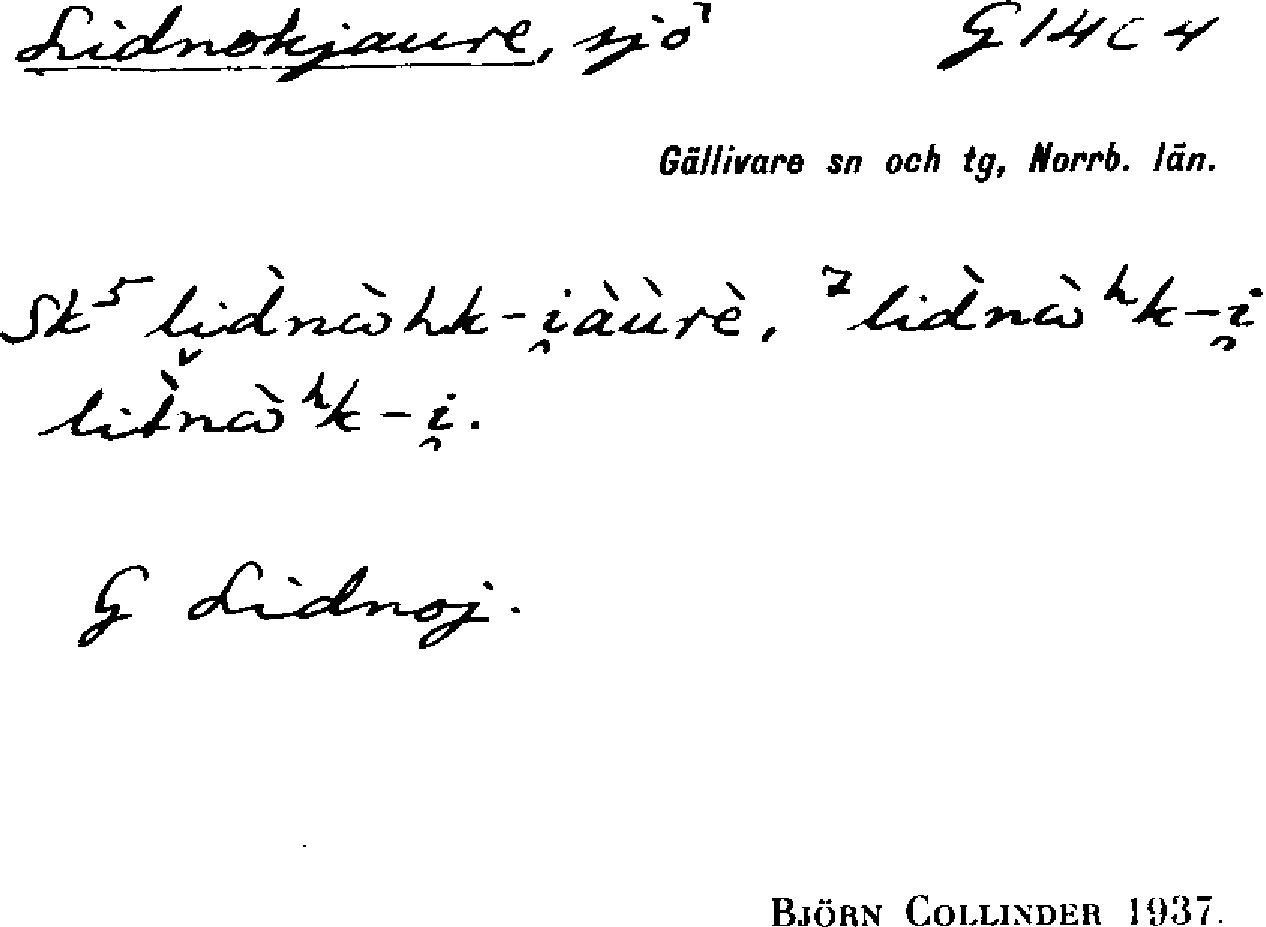 Lidnokjaure, sjö G14C4
Gällivare sn och tg, Norrb. län.
Sk⁵ li̬d̀nὼhk-i̯àùrè, ⁷lid̀nὼʰk-i̯
lit̀nὼʰk-i̯.
G Lidnoj.
BJÖRN COLLINDER 1937.